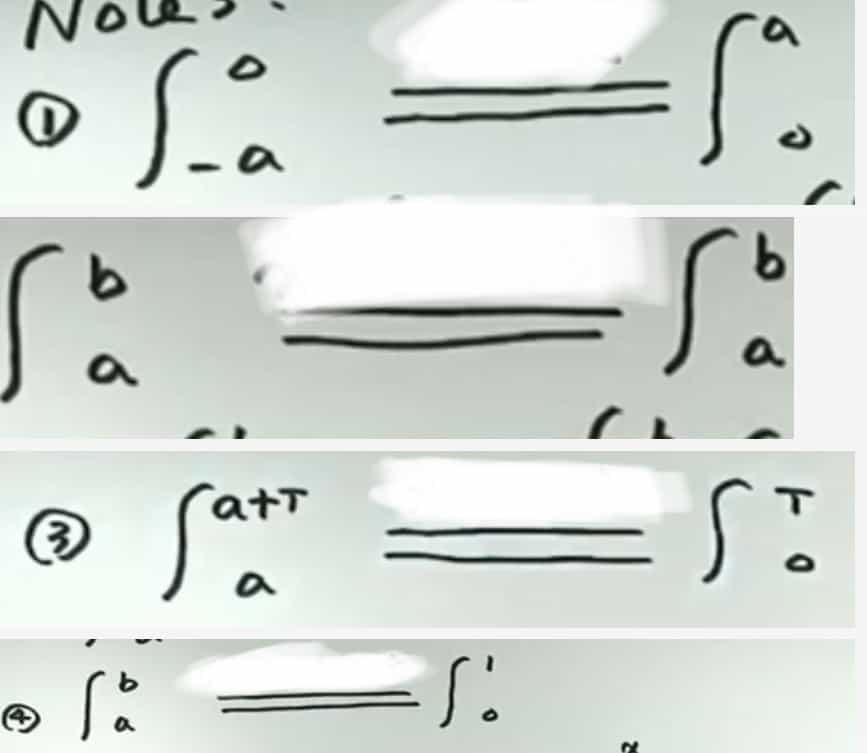 Notes:
① ∫_{-a}^{0} = ∫_{0}^{a}
∫_{a}^{b} = ∫_{a}^{b}
③ ∫_{a}^{a+T} = ∫_{0}^{T}
④ ∫_{a}^{b} = ∫_{0}^{1}